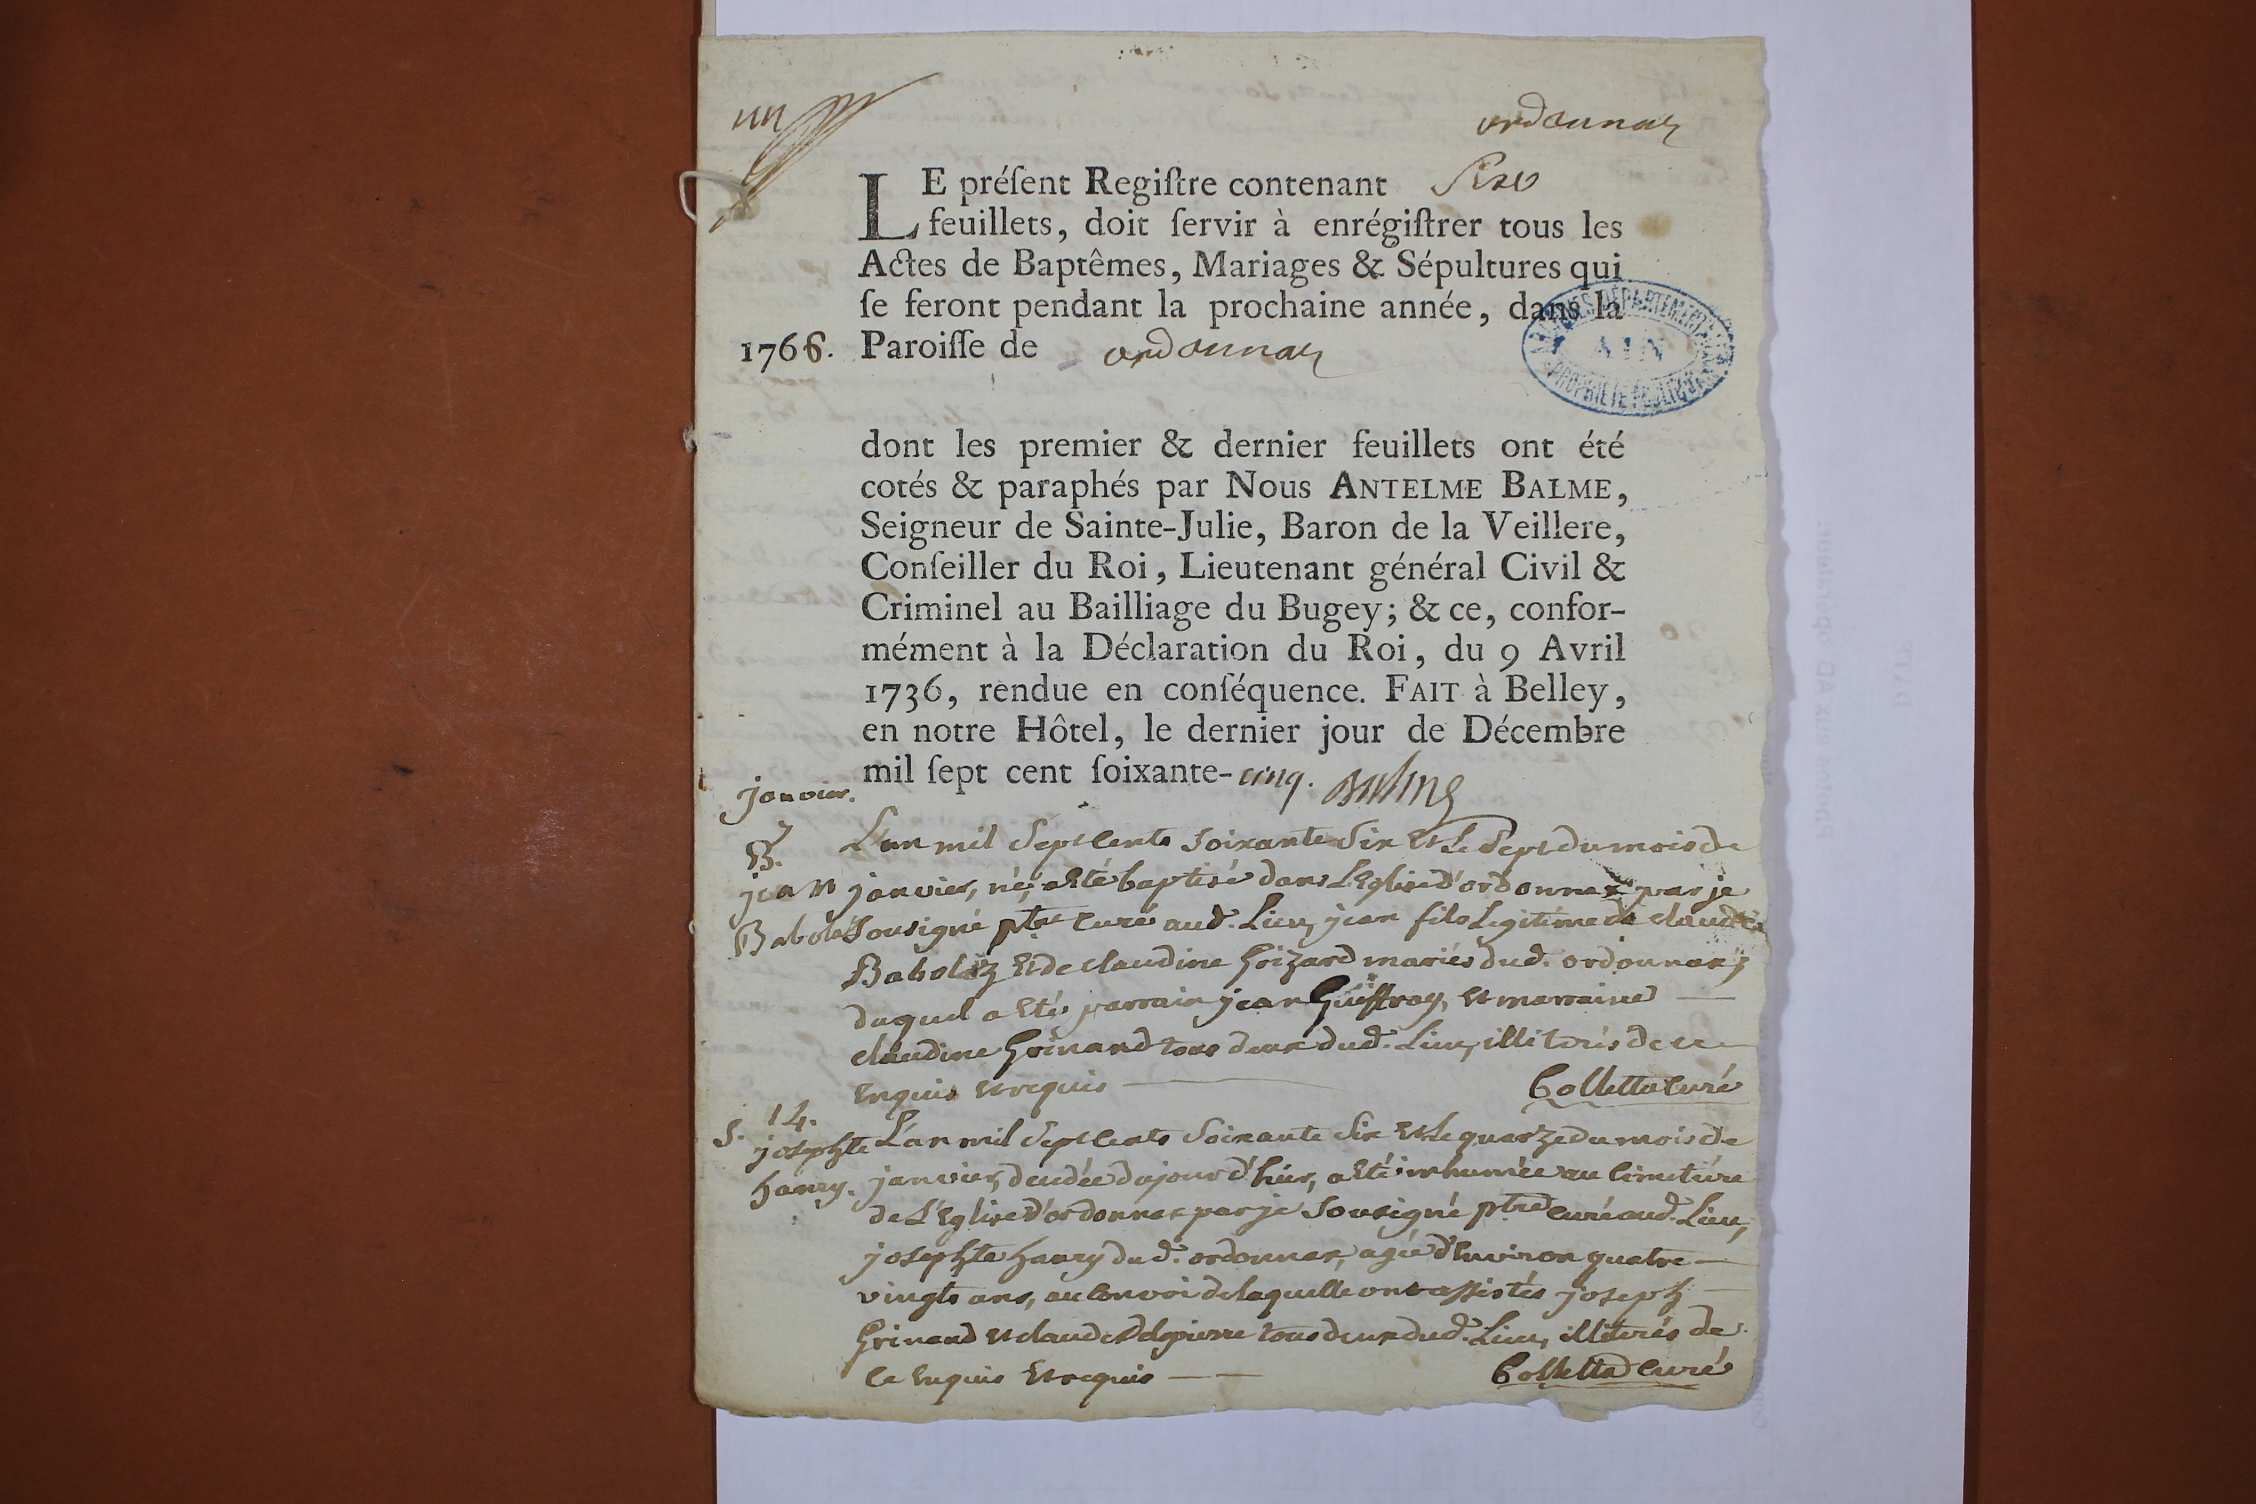 un
ordonnaz
LE préſent Regiſtre contenant Six
feuillets, doit ſervir à enrégiſtrer tous les
Actes de Baptêmes, Mariages & Sépultures qui
ſe feront pendant la prochaine année, dans la
1766. Paroiſſe de ordonnaz
ARCHIVES DÉPARTEMENTALES
AIN
PROPRIÉTÉ PUBLIQUE
dont les premier & dernier feuillets ont été
cotés & paraphés par Nous ANTELME BALME,
Seigneur de Sainte-Julie, Baron de la Veillere,
Conſeiller du Roi, Lieutenant général Civil &
Criminel au Bailliage du Bugey; & ce, confor-
mément à la Déclaration du Roi, du 9 Avril
1736, rendue en conſéquence. FAIT à Belley,
en notre Hôtel, le dernier jour de Décembre
mil ſept cent ſoixante-cinq. Balme
janvier.
7
B.
jean
Babolez
L'an mil Sept Cents Soixante Six Et Le Sept du mois de
janvier, né, a Eté baptisé dans L'Eglise d'ordonnaz par je
Sousigné ptre Curé aud. Lieu, jean fils Legitime de claude
Babolaz Et de claudine Grizard mariés dud. ordonnaz;
duquel a Eté parrain jean Guiffray, Et marraine
claudine Grinand tous deux dud. Lieu, illiterés de ce
Enquis Et requis
Colletta Curé
S. 14.
josephte
hanry.
L'an mil Sept Cents Soixante Six Et Le quatorze du mois de
janvier, decedée dujourd'hier, a Eté inhumée au Cimetiére
de L'Eglise d'ordonnaz par je Sousigné ptre Curé aud. Lieu,
josephte hanry dud. ordonnaz, agée d'Environ quatre
vingts ans, au Convoi de laquelle ont assistés joseph
Grinand Et claude Delapierre tous deux dud. Lieu, illiterés de
Ce Enquis Et requis
Colletta Curé